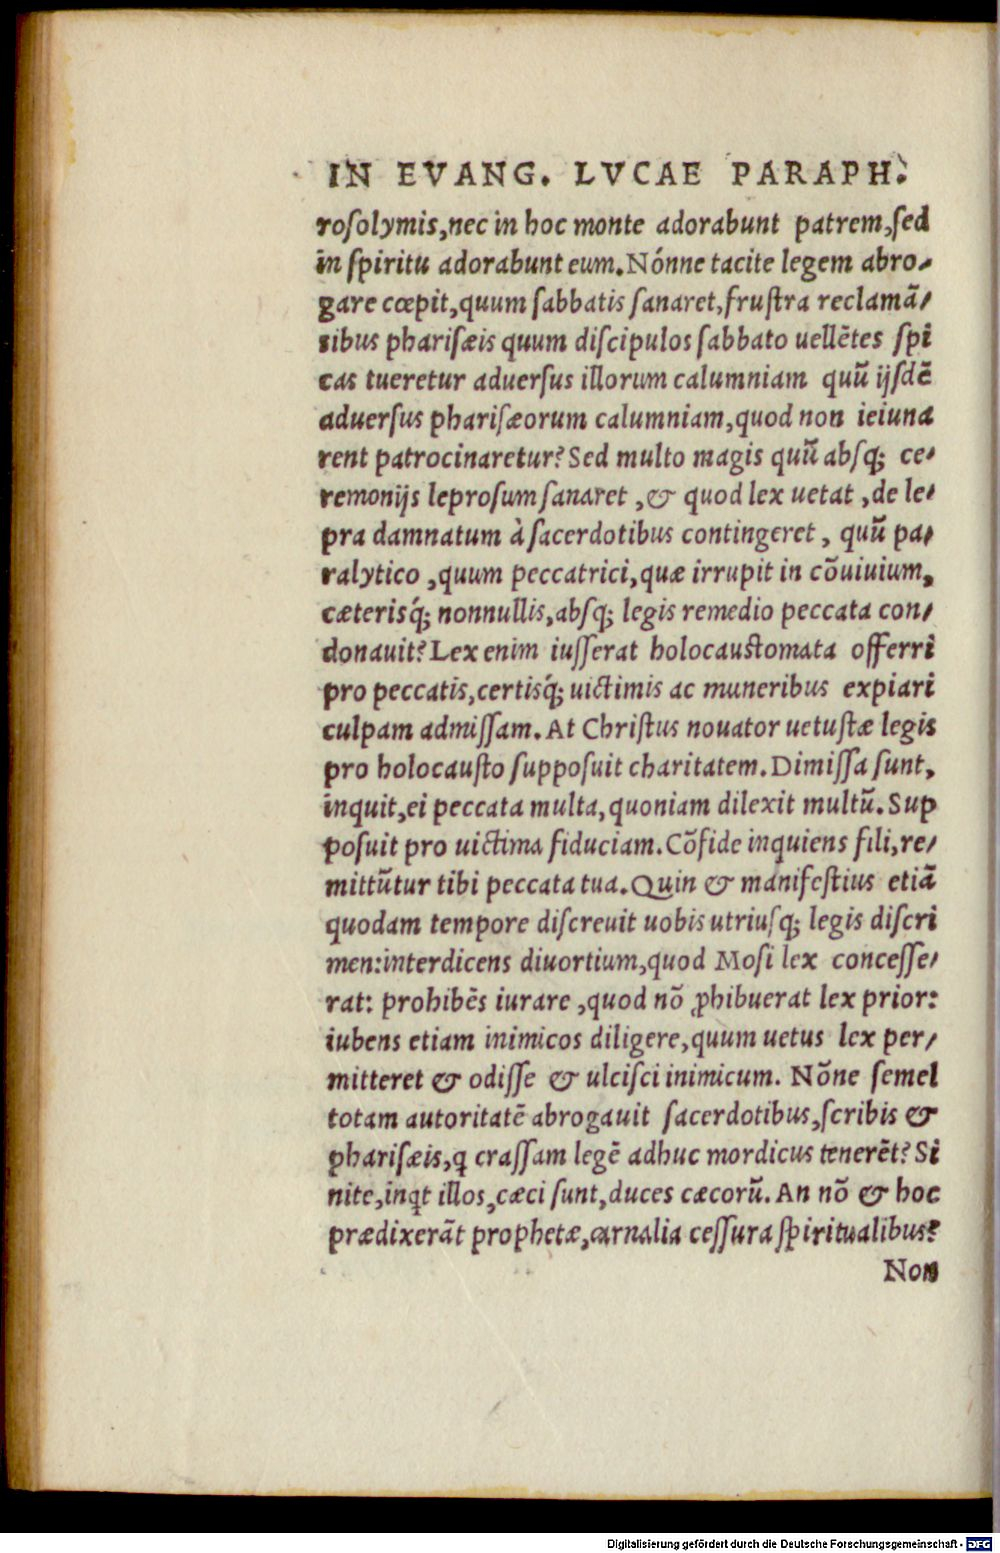 IN EVANG. LVCAE PARAPH.
rosolymis, nec in hoc monte adorabunt patrem, sed
in spiritu adorabunt eum. Nónne tacite legem abro-
gare cœpit, quum sabbatis sanaret, frustra reclamā-
tibus pharisæis quum discipulos sabbato uellētes spi
cas tueretur aduersus illorum calumniam quū ijsdē
aduersus pharisæorum calumniam, quod non ieiuna
rent patrocinaretur? Sed multo magis quū absq; ce-
remonijs leprosum sanaret, & quod lex uetat, de le-
pra damnatum à sacerdotibus contingeret, quū pa-
ralytico, quum peccatrici, quæ irrupit in cōuiuium,
cæterisq́; nonnullis, absq; legis remedio peccata con-
donauit? Lex enim iusserat holocaustomata offerri
pro peccatis, certisq́; uictimis ac muneribus expiari
culpam admissam. At Christus nouator uetustæ legis
pro holocausto supposuit charitatem. Dimissa sunt,
inquit, ei peccata multa, quoniam dilexit multū. Sup
posuit pro uictima fiduciam. Cōfide inquiens fili, re-
mittūtur tibi peccata tua. Quin & manifestius etiā
quodam tempore discreuit uobis utriusq; legis discri
men: interdicens diuortium, quod Mosi lex concesse-
rat: prohibēs iurare, quod nō ꝓhibuerat lex prior:
iubens etiam inimicos diligere, quum uetus lex per-
mitteret & odisse & ulcisci inimicum. Nōne semel
totam autoritatē abrogauit sacerdotibus, scribis &
pharisæis, q crassam legē adhuc mordicus tenerēt? Si
nite, inqt illos, cæci sunt, duces cæcorū. An nō & hoc
prædixerāt prophetæ, carnalia cessura spiritualibus?
Non
Digitalisierung gefördert durch die Deutsche Forschungsgemeinschaft - DFG